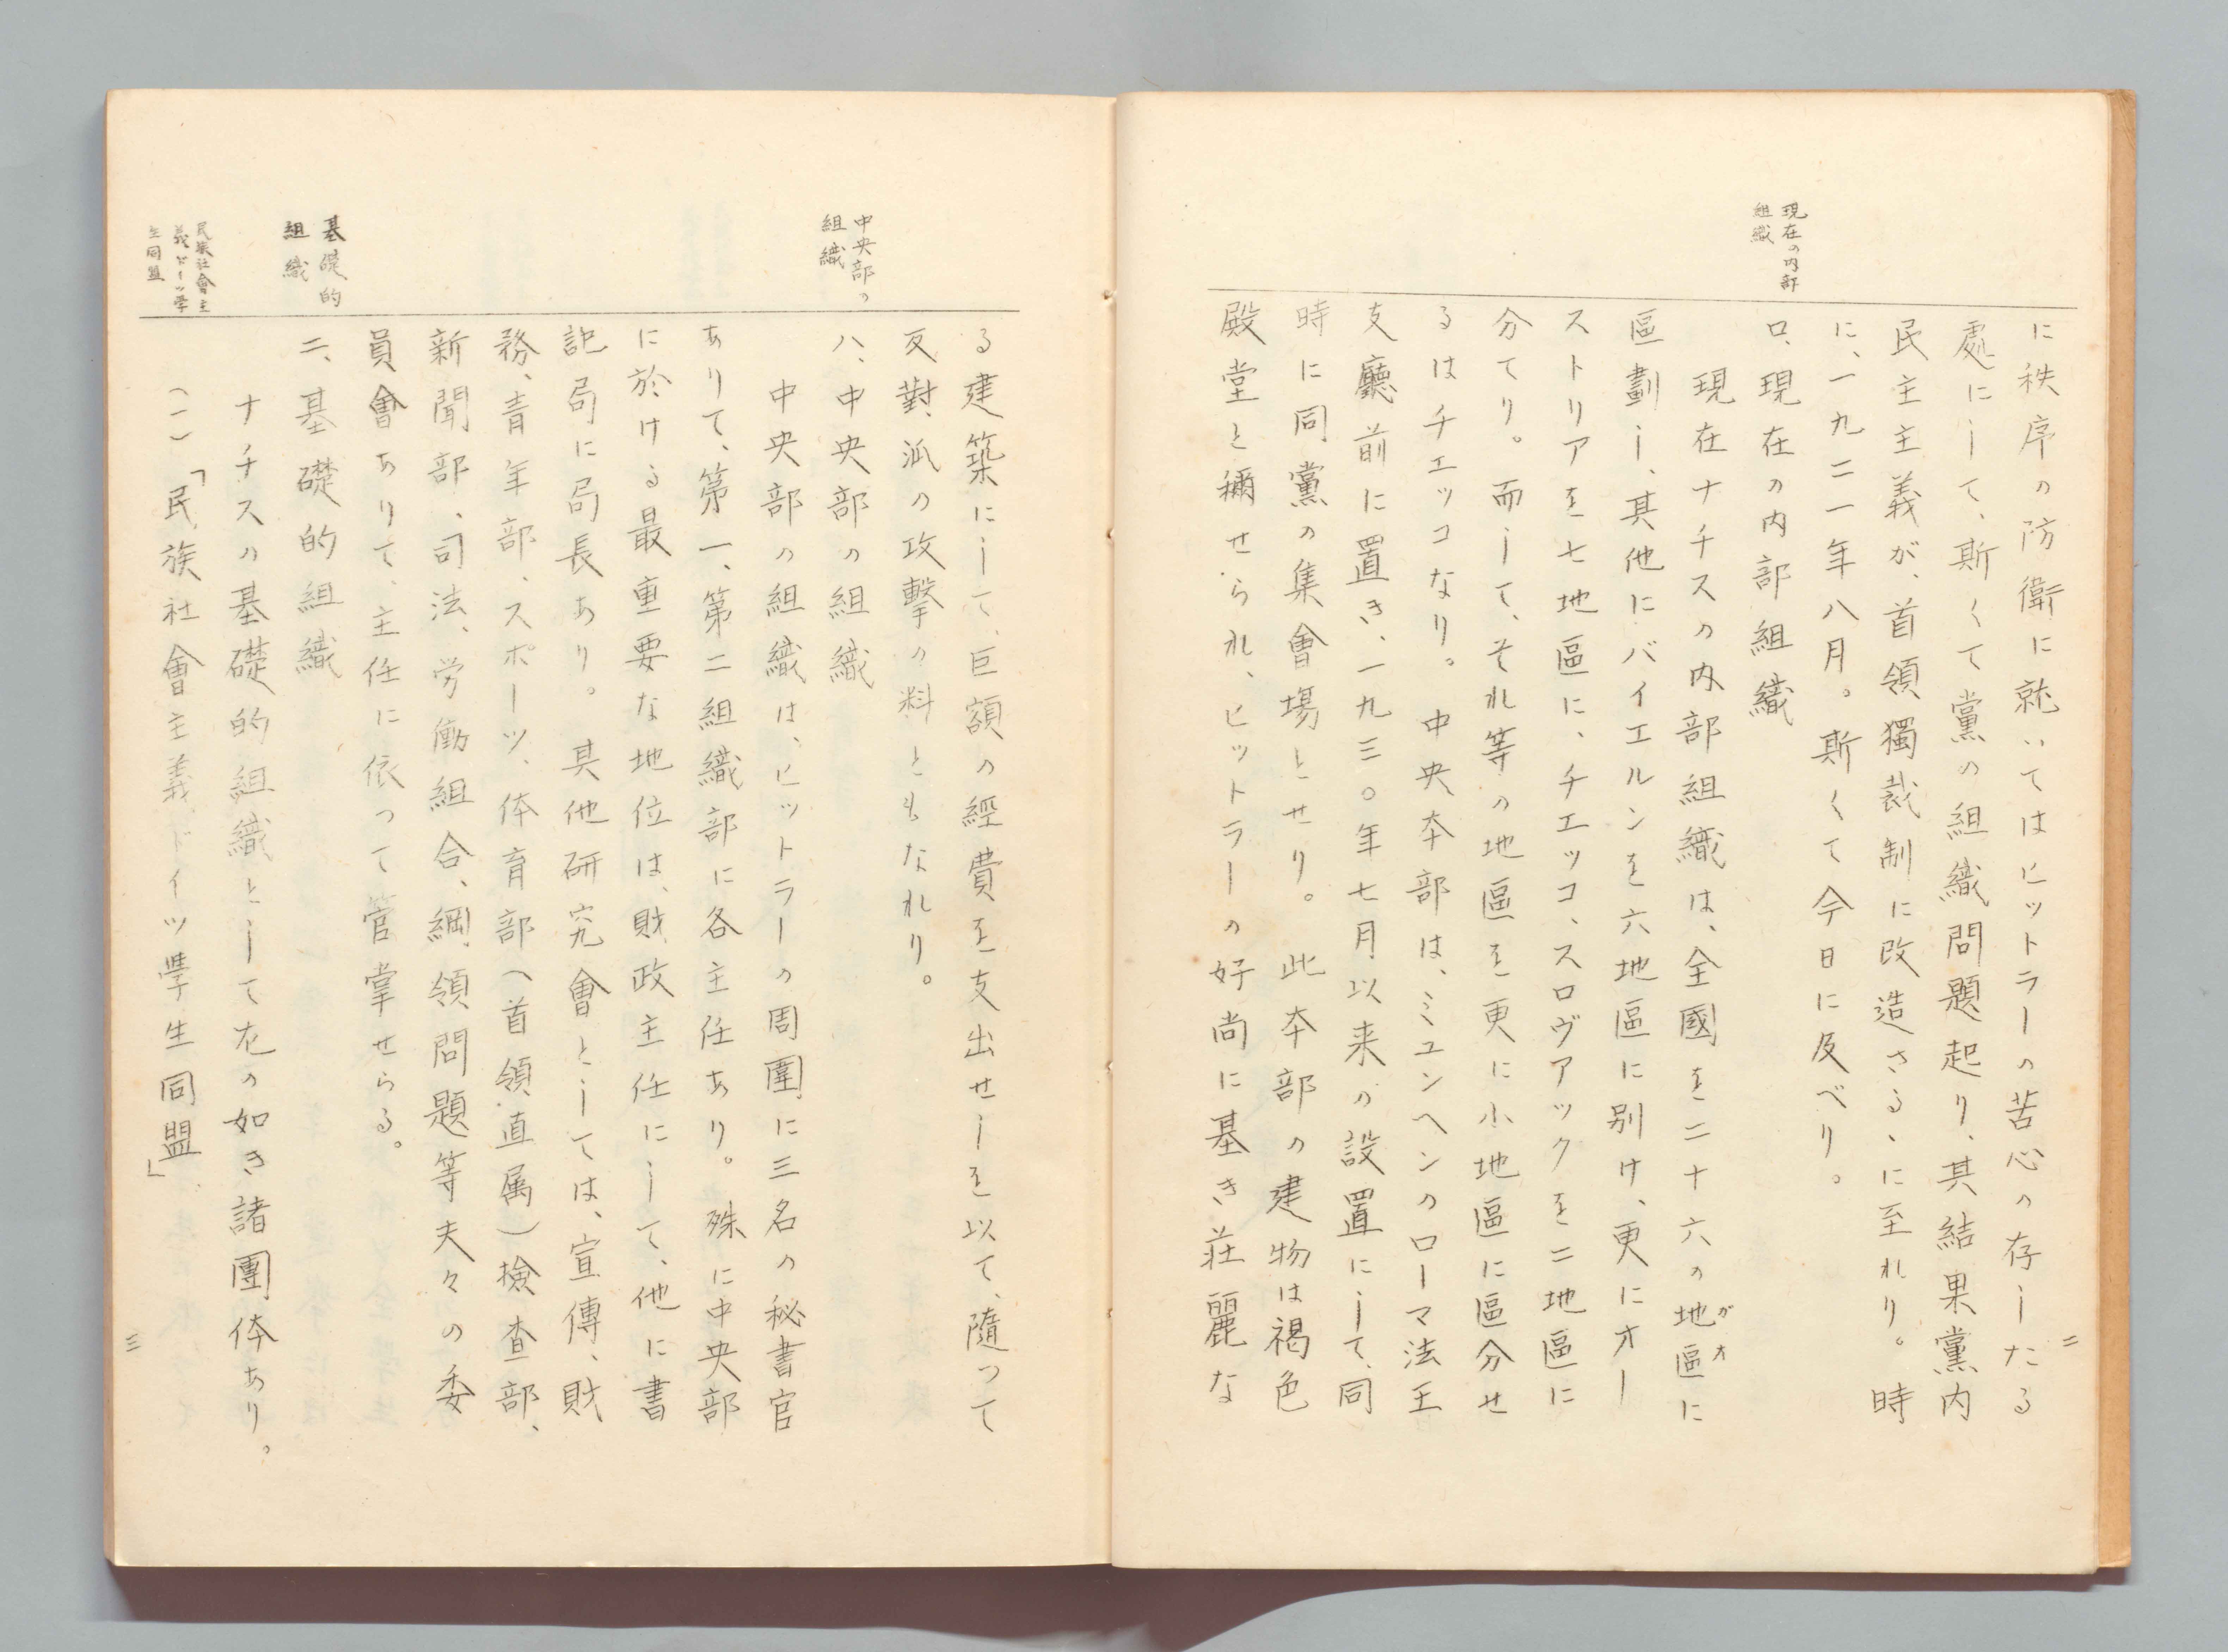 現在の内部
組織
に秩序の防衛に就いてはヒットラーの苦心の存したる
處にして、斯くて黨の組織問題起り、其結果黨内
民主主義が、首領獨裁制に改造さるゝに至れり。時
に、一九二一年八月。斯くて今日に及べり。
ロ、現在の内部組織
現在ナチスの内部組織は、全國を二十六の地區に
ガオ
區劃し、其他にバイエルンを六地區に別け、更にオー
ストリアを七地區に、チエッコ、スロヴアックを二地區に
分てり。而して、それ等の地區を更に小地區に區分せ
るはチエッコなり。中央本部は、ミユンヘンのローマ法王
支廳前に置き、一九三〇年七月以来の設置にして、同
時に同黨の集會場とせり。此本部の建物は褐色
殿堂と稱せられ、ヒットラーの好尚に基き荘麗な
二
中央部の
組織
基礎的
組織
民族社會主
義ドーツ學
生同盟
る建築にして、巨額の經費を支出せしを以て、隨つて
反對派の攻撃の料ともなれり。
ハ、中央部の組織
中央部の組織は、ヒットラーの周圍に三名の秘書官
ありて、第一、第二組織部に各主任あり。殊に中央部
に於ける最重要な地位は、財政主任にして、他に書
記局に局長あり。其他研究會としては、宣傳、財
務、青年部、スポーツ、体育部(首領直属)檢査部、
新聞部、司法、労働組合、綱領問題等夫々の委
員會ありて、主任に依つて管掌せらる。
ニ、基礎的組織
ナチスの基礎的組織として左の如き諸團体あり。
(一)「民族社會主義ドイツ學生同盟」
三